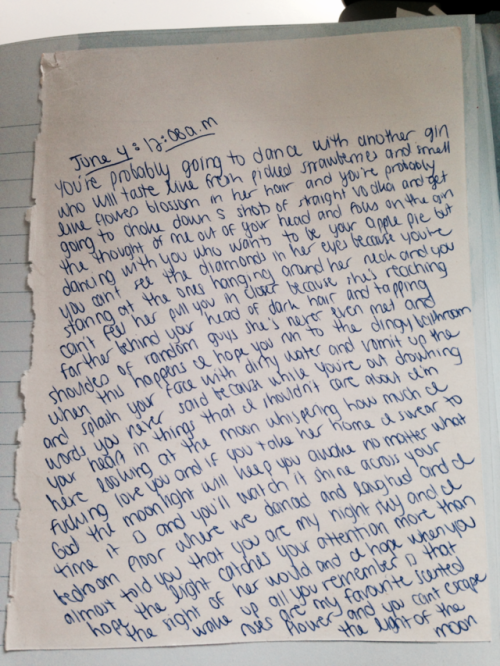 June 4: 12:08a.m
You're probably going to dance with another girl
who will taste like fresh picked strawberries and smell
like flowers blossom in her hair and you're probably
going to choke down 5 shots of straight vodka and get
the thought of me out of your head and focus on the girl
dancing with you who wants to be your apple pie but
you can't see the diamonds in her eyes because you're
staring at the ones hanging around her neck and you
can't feel her pull you in closer because she's reaching
farther behind your head of dark hair and tapping
shoulders of random guys she's never even met and
when this happens I hope you run to the dingy bathroom
and splash your face with dirty water and vomit up the
words you never said because while you're out drowning
your heart in things that I shouldn't care about I'm
here looking at the moon whispering how much I
fucking love you and if you take her home I swear to
God the moonlight will keep you awake no matter what
time it is and you'll watch it shine across your
bedroom floor where we danced and laughed and I
almost told you that you are my night sky and I
hope the light catches your attention more than
the sight of her would and I hope when you
wake up all you remember is that
roses are my favourite scented
flower and you can't escape
the light of the
moon